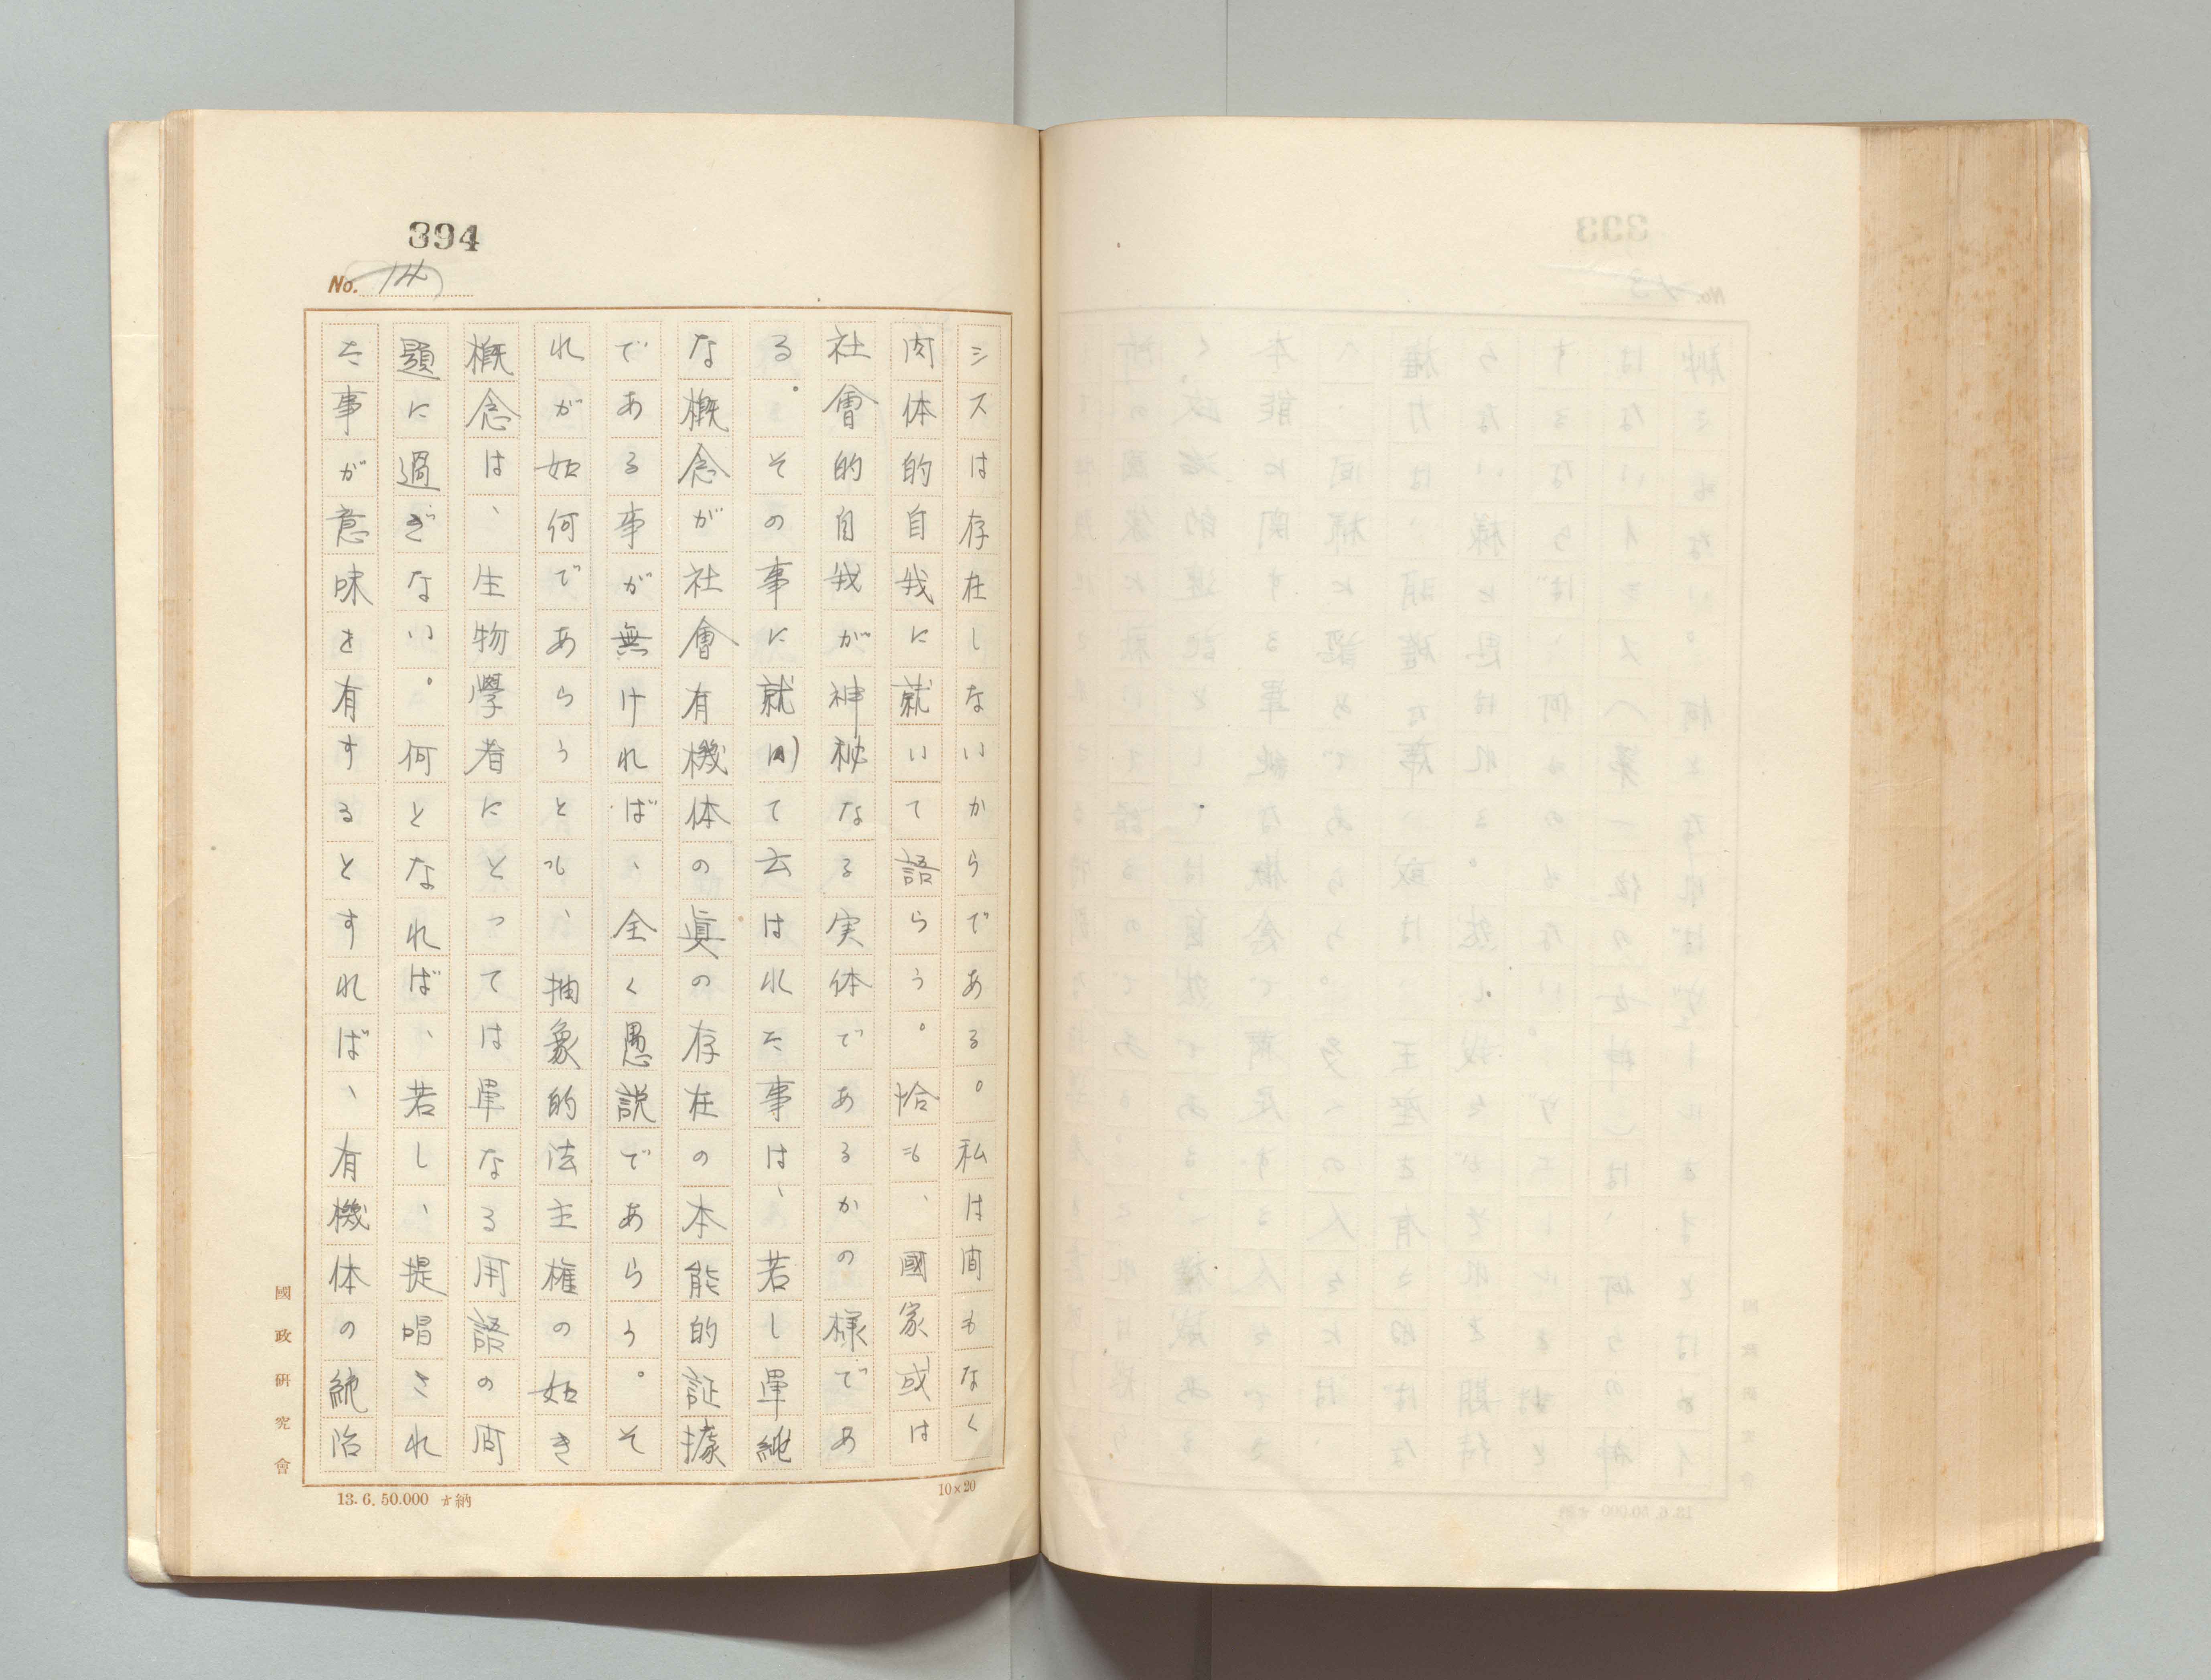 394
No. 14
シスは存在しないからである。私は間もなく
肉体的自我に就いて語らう。恰も、國家或は
社會的自我が神秘なる実体であるかの様であ
る。その事に就いて云はれた事は、若し單純
な概念が社會有機体の眞の存在の本能的証據
である事が無ければ、全く愚説であらう。そ
れが如何であらうとも、抽象的法主権の如き
概念は、生物學者にとっては單なる用語の問
題に過ぎない。何となれば、若し、提唱され
た事が意味を有するとすれば、有機体の統治
國政研究會
13.6.50.000 ｵ納
10×20